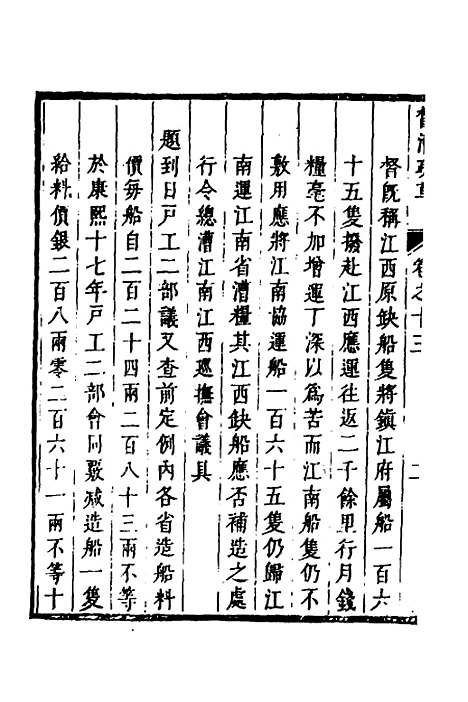 督漕疏草
卷之十三
二
督既稱江西原缺船隻將鎮江府屬船一百六
十五隻撥赴江西應運往返二千餘里行月錢
糧毫不加增運丁深以為苦而江南船隻仍不
敷用應將江南協運船一百六十五隻仍歸江
南運江南省漕糧其江西缺船應否補造之處
行令總漕江南江西廵撫會議具
題到日戸工二部議又查前定例内各省造船料
價每船自二百二十四兩二百八十三兩不等
於康熙十七年戸工二部會同覈减造船一隻
給料價銀二百八兩零二百六十一兩不等十